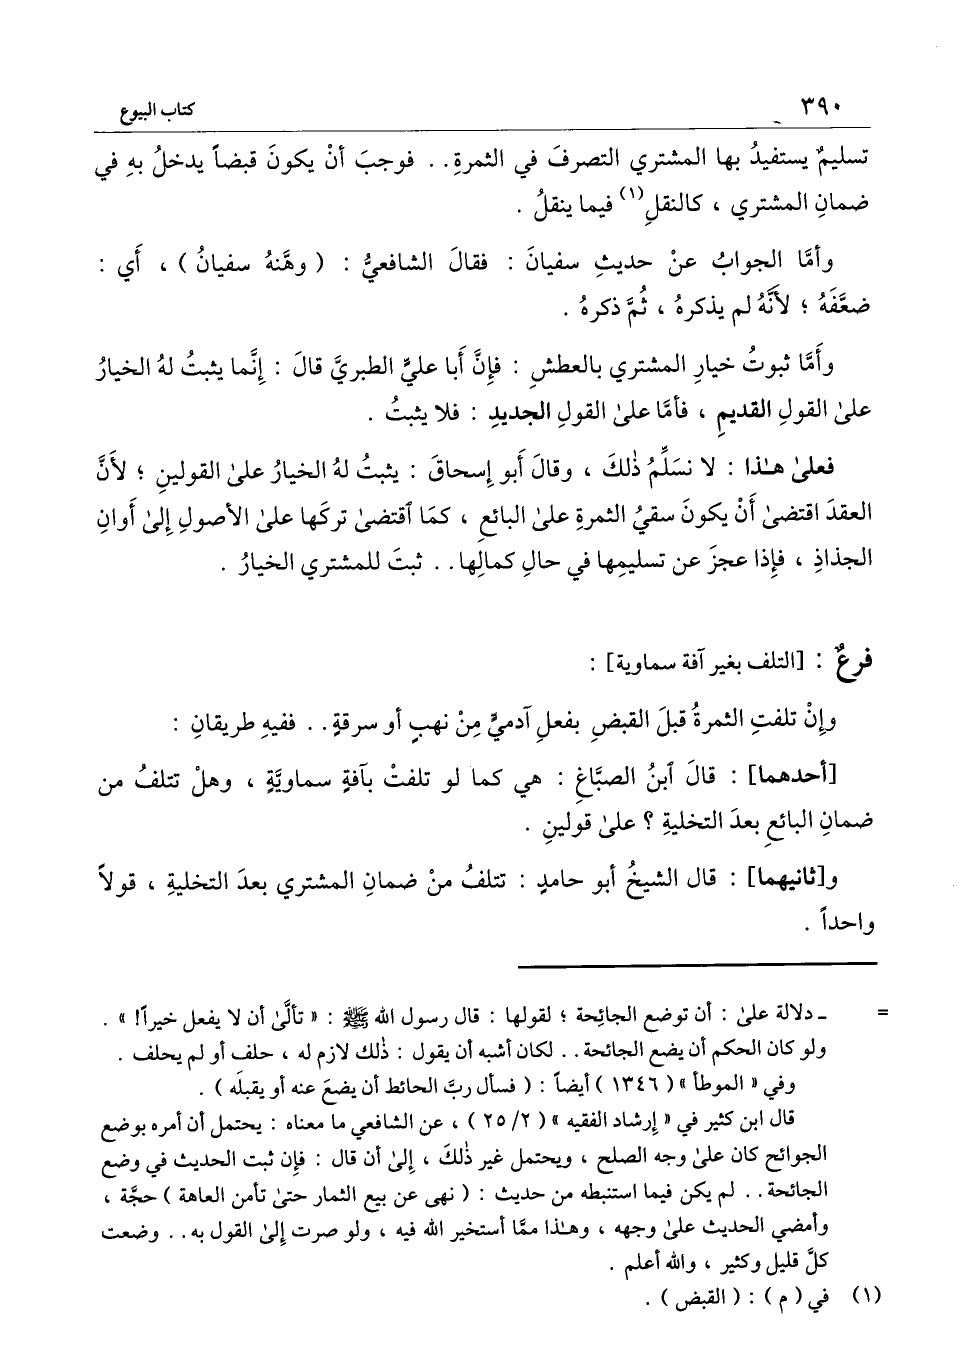 ٣٩٠ كتاب البيوع
تسليمٌ يستفيدُ بها المشتري التصرفَ في الثمرةِ.. فوجبَ أنْ يكونَ قبضاً يدخلُ بهِ في
ضمانِ المشتري ، كالنقلِ(١) فيما ينقلُ .
وأمَّا الجوابُ عنْ حديثِ سفيانَ : فقالَ الشافعيُّ : ( وهَّنهُ سفيانُ ) ، أَي :
ضعَّفَهُ ؛ لأنَّهُ لم يذكرهُ ، ثُمَّ ذكرهُ .
وأمَّا ثبوتُ خيارِ المشتري بالعطشِ : فإنَّ أبا عليٍّ الطبريَّ قالَ : إنَّما يثبتُ لهُ الخيارُ
علىٰ القولِ القديمِ ، فأمَّا علىٰ القولِ الجديدِ : فلا يثبتُ .
فعلىٰ هـٰذا : لا نسَلِّمُ ذٰلكَ ، وقالَ أبو إسحاقَ : يثبتُ لهُ الخيارُ علىٰ القولينِ ؛ لأنَّ
العقدَ اقتضىٰ أنْ يكونَ سقيُ الثمرةِ علىٰ البائعِ ، كمَا ٱقتضىٰ تركَها علىٰ الأصولِ إلىٰ أوانِ
الجذاذِ ، فإذا عجزَ عن تسليمِها في حالِ كمالِها.. ثبتَ للمشتري الخيارُ .
فرعٌ : [التلف بغير آفة سماوية] :
وإنْ تلفتِ الثمرةُ قبلَ القبضِ بفعلِ آدميٍّ مِنْ نهبٍ أو سرقةٍ.. ففيهِ طريقانِ :
[أحدهما] : قالَ ٱبنُ الصبَّاغِ : هي كما لو تلفتْ بآفةٍ سماويَّةٍ ، وهلْ تتلفُ من
ضمانِ البائعِ بعدَ التخليةِ ؟ علىٰ قولينِ .
و[ثانيهما] : قال الشيخُ أبو حامدٍ : تتلفُ منْ ضمانِ المشتري بعدَ التخليةِ ، قولاً
واحداً .
= ـ دلالة علىٰ : أن توضع الجائحة ؛ لقولها : قال رسول الله ﷺ : « تألَّىٰ أن لا يفعل خيراً! » .
ولو كان الحكم أن يضع الجائحة.. لكان أشبه أن يقول : ذٰلك لازم له ، حلف أو لم يحلف .
وفي « الموطأ » ( ١٣٤٦ ) أيضاً : ( فسأل ربَّ الحائط أن يضعَ عنه أو يقبلَه ) .
قال ابن كثير في « إرشاد الفقيه » ( ٢/ ٢٥ ) ، عن الشافعي ما معناه : يحتمل أن أمره بوضع
الجوائح كان علىٰ وجه الصلح ، ويحتمل غير ذٰلكَ ، إلىٰ أن قال : فإن ثبت الحديث في وضع
الجائحة.. لم يكن فيما استنبطه من حديث : ( نهى عن بيع الثمار حتىٰ تأمن العاهة ) حجَّة ،
وأمضي الحديث علىٰ وجهه ، وهـٰذا ممَّا أستخير الله فيه ، ولو صرت إلىٰ القول به.. وضعت
كلَّ قليل وكثير ، والله أعلم .
(١) في ( م ) : ( القبض ) .